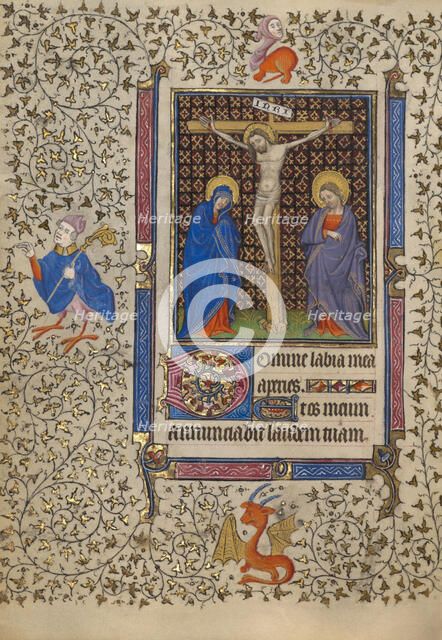 INRI
Domine labia mea
aperies.
Et os meum
annunciabit laudem tuam
Heritage Heritage
Heritage Heritage
Heritage Heritage